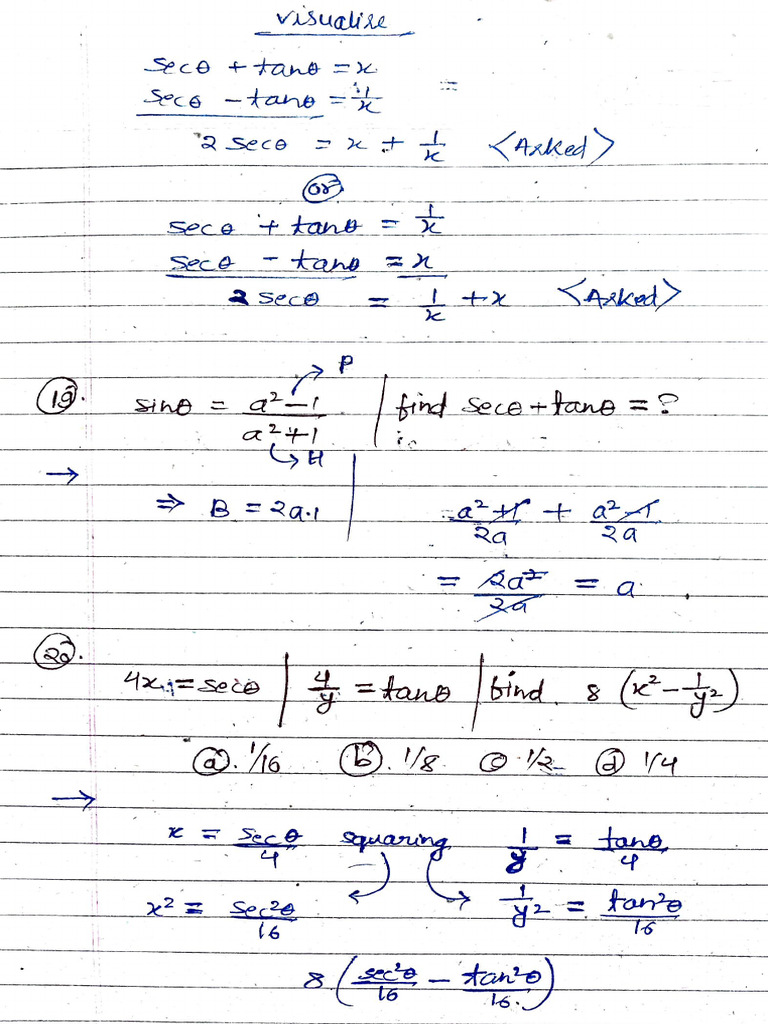 visualise
secθ + tanθ = x
secθ - tanθ = 1/x =
2 secθ = x + 1/x <Asked>
or
secθ + tanθ = 1/x
secθ - tanθ = x
2 secθ = 1/x + x <Asked>
→ P
19. sinθ = (a² - 1)/(a² + 1) | find secθ + tanθ = ?
→ H
→ ⇒ B = 2a·1 | (a² + 1)/2a + (a² - 1)/2a
= 2a²/2a = a
20. 4x = secθ | 4/y = tanθ | find 8 (x² - 1/y²)
(a) 1/16 (b) 1/8 (c) 1/2 (d) 1/4
→ x = secθ/4 squaring 1/y = tanθ/4
x² = sec²θ/16 1/y² = tan²θ/16
8 (sec²θ/16 - tan²θ/16)